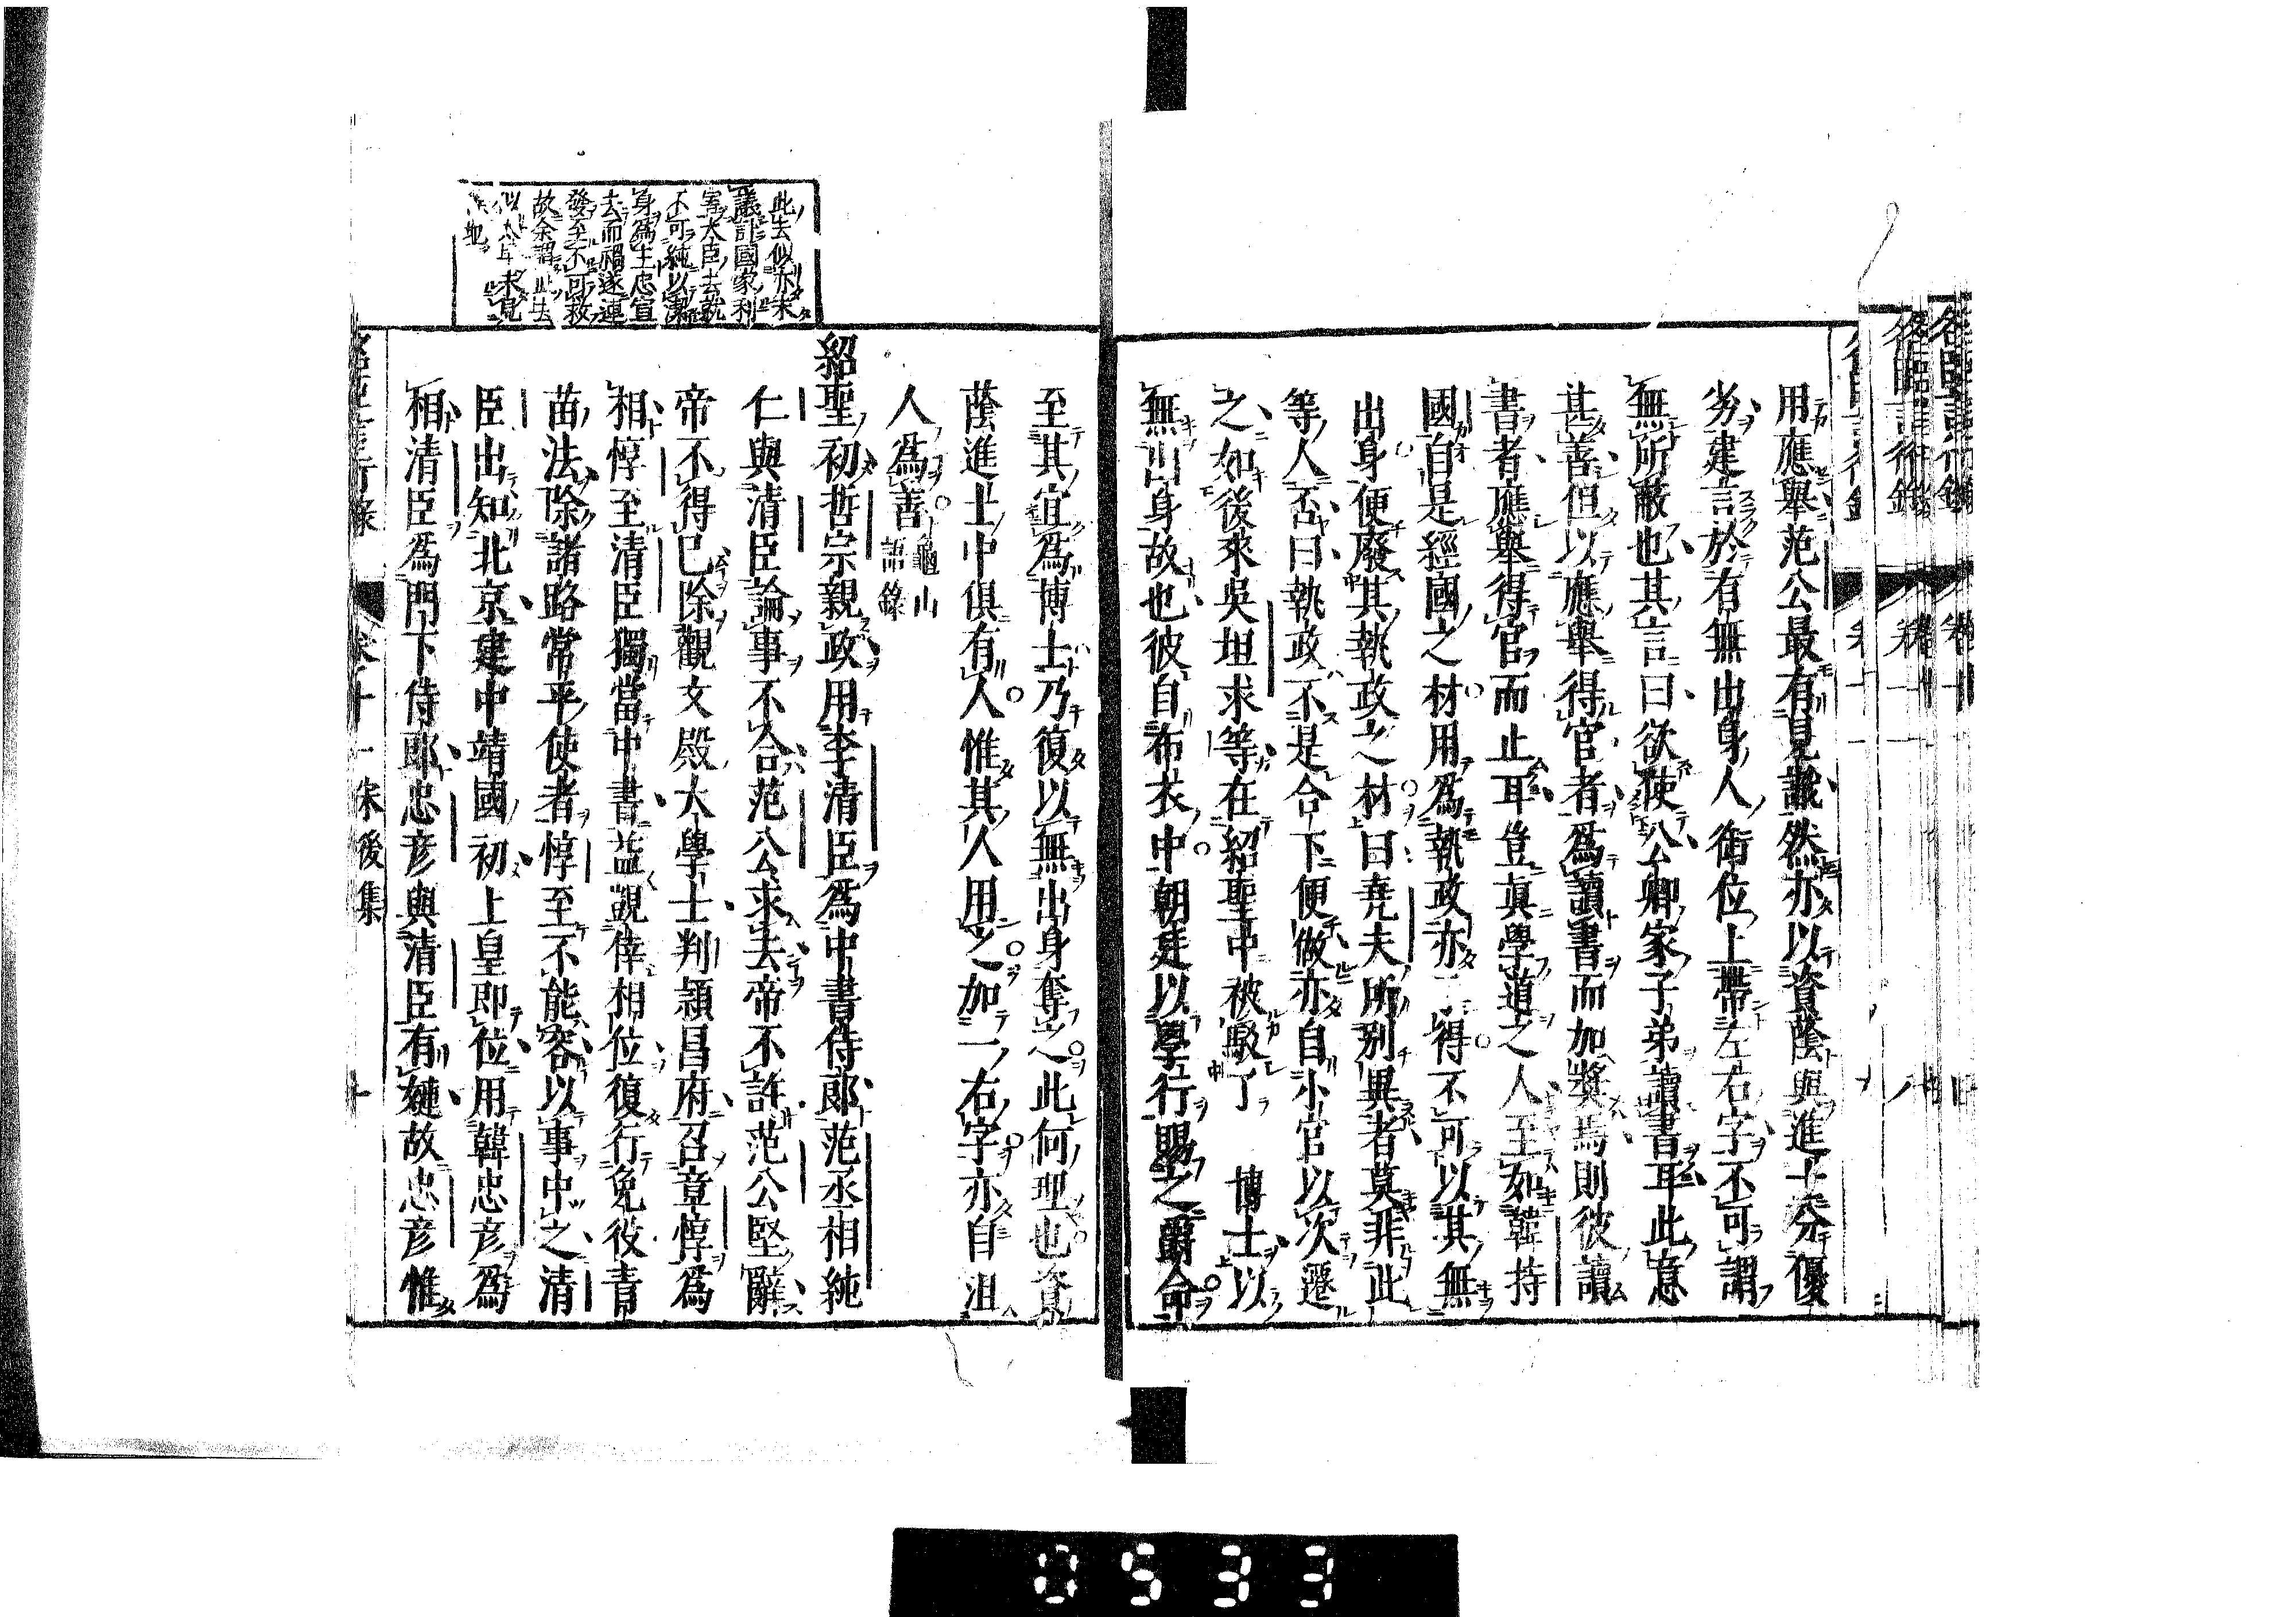 用應舉范公最有見識然亦以資蔭與進士分優
劣建言於有無出身人銜位上帶左右字不可謂
無所蔽也其言曰欲使公卿家子弟讀書耳此意
甚善但以應舉得官者爲讀書而加獎焉則彼讀
書者應舉得官而止耳豈眞學道之人至如韓持
國自是經國之材用爲執政亦 得不可以其無
出身便廢其執政之材曰堯夫所別異者莫非此
等人否曰執政不是合下便做亦自小官以次遷
之如後來吳坦求等在紹聖中被駁了 博士以
無出身故也彼自布衣中朝廷以學行賜之爵命
至其宜爲博士乃復以無出身奪之此何理也資
蔭進士中俱有人惟其人用之加一右字亦自沮
人爲善 龜山
語錄
此去似亦未
議計國家利
害大臣去就
不可純以潔
身爲主忠宣
去而禍遂連
發至不可救
故余謂此去
未見
紹聖初哲宗親政用李清臣爲中書侍郎范丞相純
仁與清臣論事不合范公求去帝不許范公堅辭
帝不得已除觀文殿大學士判潁昌府召章惇爲
相惇未至清臣獨當中書益覬倖相位復行免役青
苗法除諸路常平使者惇至不能容以事中之清
臣出知北京建中靖國初上皇即位用韓忠彥爲
相清臣爲門下侍郎忠彥與清臣有㜕故忠彥惟
名臣言行錄 卷十一 宋後集 十
0533